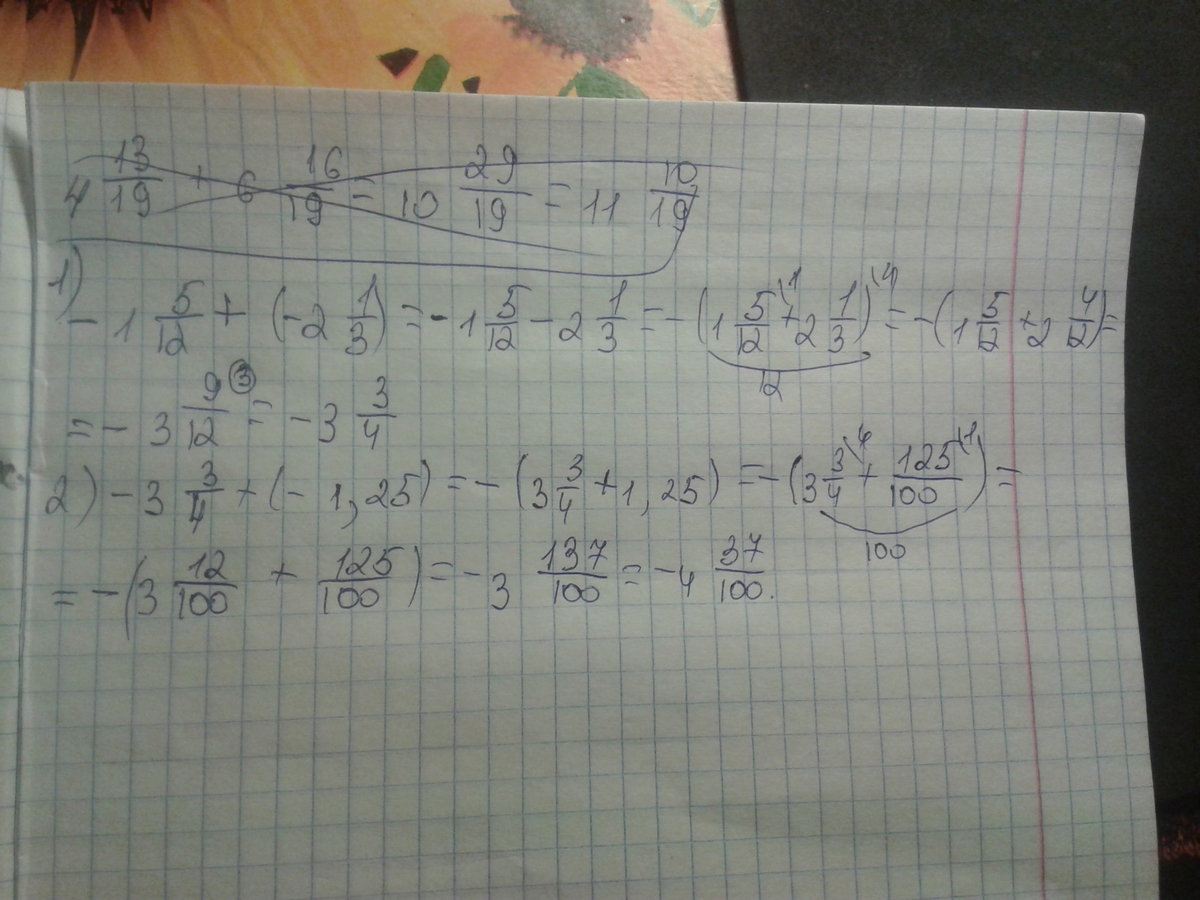 4 13/19 + 6 16/19 = 10 29/19 = 11 10/19
1)
- 1 5/12 + (-2 1/3) = - 1 5/12 - 2 1/3 = - (1 5/12 \1 + 2 1/3) \4 = - (1 5/12 + 2 4/12) =
12
= - 3 9/12 ③ = - 3 3/4
2) - 3 3/4 + (- 1,25) = - (3 3/4 + 1,25) = - (3 3/4 \4 + 125/100 \1) =
100
= - (3 12/100 + 125/100) = - 3 137/100 = - 4 37/100.